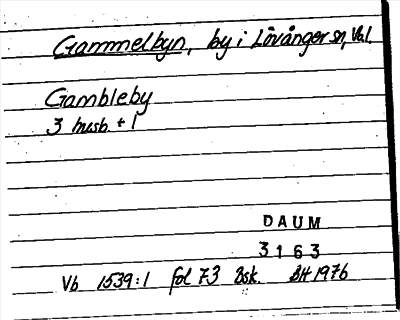 Gammelbyn, by i Lövånger sn, Vb.
Gambleby
3 husb. + 1
DAUM
3163
Vb 1539:1 fol 73 Bsk. BH 1976